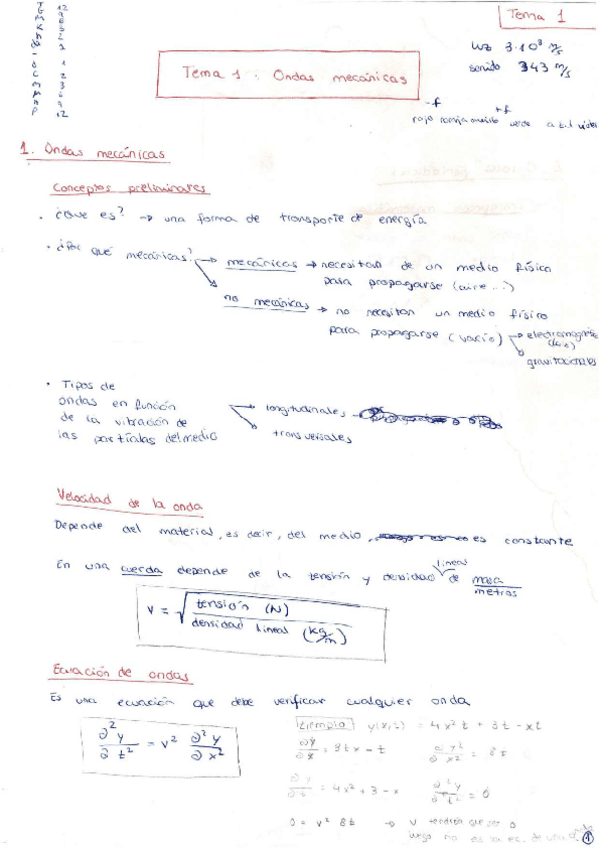 Tema 1
luz 3·10³ m/s
sonido 343 m/s
Tema 1 : Ondas mecánicas
-f +f
rojo naranja amarillo verde azul violeta
1. Ondas mecánicas
Conceptos preliminares
· ¿Que es? → una forma de transporte de energía
· ¿Por qué mecánicas? → mecánicas → necesitan de un medio físico
para propagarse (aire...)
no mecánicas → no necesitan un medio físico
para propagarse (vacío) → electromagné
(luz)
gravitacionales
· Tipos de
ondas en función
de la vibración de
las partíalas del medio
longitudinales
transversales
Velocidad de la onda
Depende del material, es decir, del medio, es constante
lineal
En una cuerda depende de la tensión y densidad de masa/metros
v = √ tensión (N) / densidad lineal (kg/m)
Ecuación de ondas
Es una ecuación que debe verificar cualquier onda
∂²y/∂t² = v² ∂²y/∂x²
Ejemplo y(x,t) = 4x²t + 3t - xt
∂y/∂x = 8tx - t ∂²y/∂x² = 8t
∂y/∂t = 4x² + 3 - x ∂²y/∂t² = 0
0 = v² 8t → v tendría que ser 0
luego no es la ec. de una onda
1